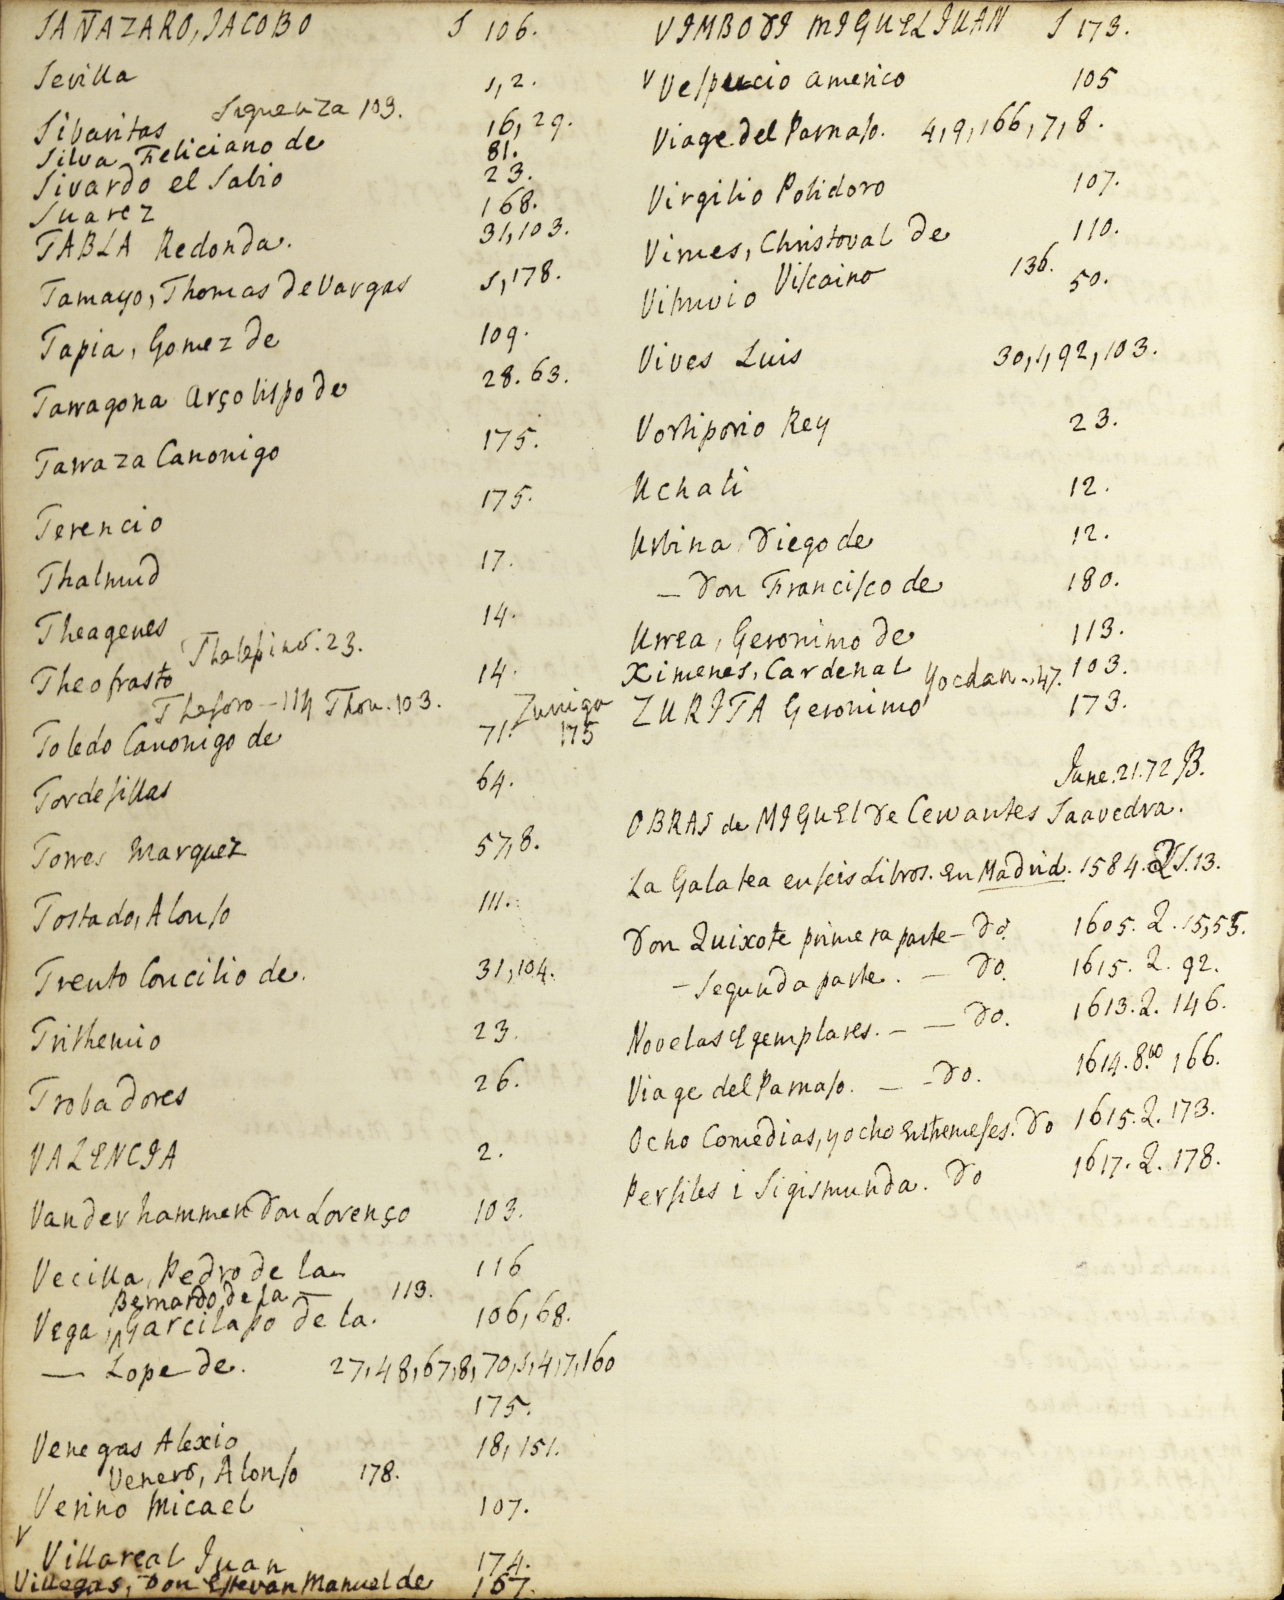 SANAZARO, JACOBO S 106.
Sevilla 1, 2.
Siguenza 103.
Sibaritas 16, 29.
Silva Feliciano de 81.
Sivardo el Sabio 23.
Suarez 168.
TABLA Redonda. 31, 103.
Tamayo, Thomas de Vargas 1, 178.
Tapia, Gomez de 109.
Tarragona Arçobispo de 28. 63.
Tarraza Canonigo 175.
Terencio 175.
Thalmud 17.
Theagenes 14.
Thelepino. 23.
Theofrasto 14.
Thesoro - 114 Thou. 103.
Toledo Canonigo de 71.
Tordesillas 64.
Torres Marquez 57, 8.
Tostado, Alonso 111.
Trento Concilio de. 31, 104.
Trithemio 23.
Trobadores 26.
VALENCIA 2.
Vanderhammen Don Lorenço 103.
Vecilla, Pedro de la 116
Bernardo de la — 113.
Vega, Garcilaso de la. 106, 68.
— Lope de. 27, 48, 67, 8, 70, 1, 4, 7, 160
175.
Venegas Alexio 18, 151.
Venero, Alonso 178.
Verino Micael 107.
V
Villareal Juan 174.
Villegas, Don Estevan Manuel de 167.
VIMBODI MIGUEL JUAN S 173.
V Vespucio Americo 105
Viage del Parnaso. 4, 9, 166, 7, 8.
Virgilio Polidoro 107.
Virues, Christoval de 110.
Viscaino 136.
Vitruvio 50.
Vives Luis 30, 1, 92, 103.
Vortiporio Rey 23.
Uchali 12.
Urbina Diego de 12.
— Don Francisco de 180.
Urrea, Geronimo de 113.
Ximenes, Cardenal 103.
Yocdan - 47.
Zuniga 175
ZURITA Geronimo 173.
June. 21. 72 JB.
OBRAS de MIGUEL De Cervantes Saavedra.
La Galatea en seis Libros. En Madrid. 1584. 2 S. 13.
Don Quixote primera parte - Do. 1605. 2. 15, 55.
- Segunda parte. — Do. 1615. 2. 92.
Novelas Egemplares. — — Do. 1613. 2. 146.
Viage del Parnaso. — - Do. 1614. 8.vo 166.
Ocho Comedias, y ocho Enthemeses. Do 1615. 2. 173.
Persiles i Sigismunda. Do 1617. 2. 178.